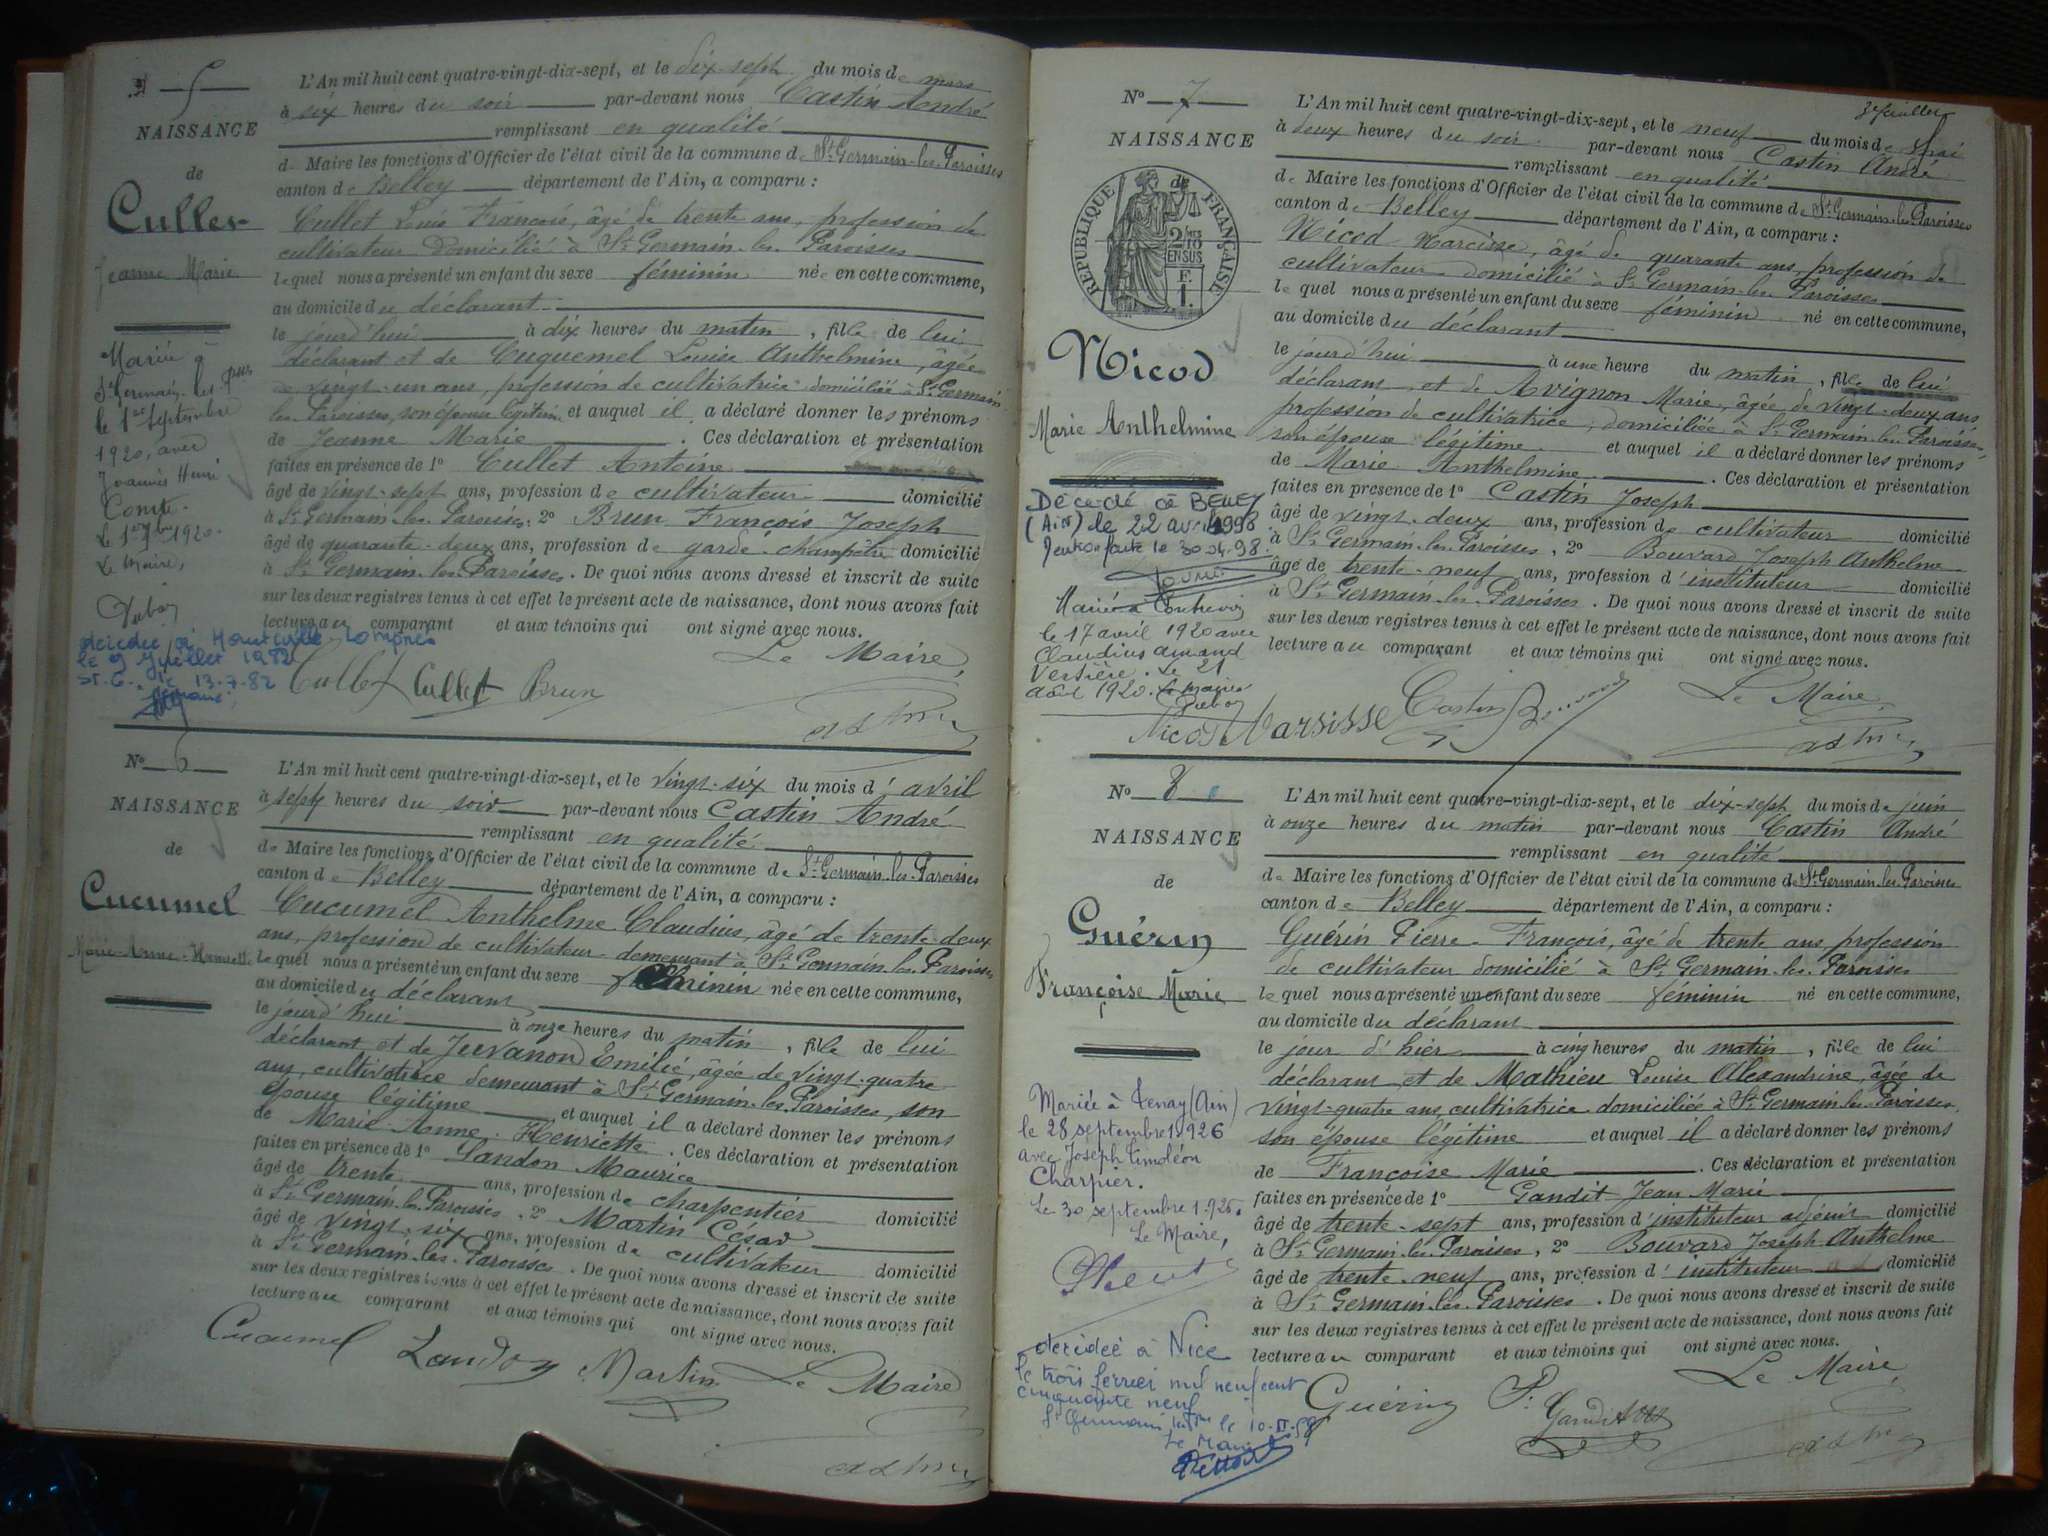 N° 5
NAISSANCE
de
Cullet
Jeanne Marie
Mariée à
St Germain-les-
le 1er septembre
1920, avec
Joannès Henri
Comte.
Le 1er 7bre 1920.
Le Maire,
décédée à Hauteville-Lompnes
le 9 Juillet 1982
St. G., le 13-7-82
L'An mil huit cent quatre-vingt-dix-sept, et le dix-sept du mois de mars
à six heures du soir par-devant nous Castin André
remplissant en qualité
de Maire les fonctions d'Officier de l'état civil de la commune de St Germain-les-Paroisses
canton de Belley département de l'Ain, a comparu :
Cullet Louis François, âgé de trente ans, profession de
cultivateur domicilié à St Germain-les-Paroisses
lequel nous a présenté un enfant du sexe féminin née en cette commune,
au domicile du déclarant
le jourd'hui à dix heures du matin, fille de lui
déclarant et de Cuquemel Louise Anthelmine, âgée
de vingt-un ans, profession de cultivatrice domiciliée à St Germain
les-Paroisses, son épouse légitime et auquel il a déclaré donner les prénoms
de Jeanne Marie. Ces déclaration et présentation
faites en présence de 1° Cullet Antoine
âgé de vingt-sept ans, profession de cultivateur domicilié
à St Germain-les-Paroisses, 2° Brun François Joseph
âgé de quarante-deux ans, profession de garde-champêtre domicilié
à St Germain-les-Paroisses. De quoi nous avons dressé et inscrit de suite
sur les deux registres tenus à cet effet le présent acte de naissance, dont nous avons fait
lecture au comparant et aux témoins qui ont signé avec nous.
Le Maire,
Cullet Cullet Brun
N° 6
NAISSANCE
de
Cucumel
Marie-Anne-Henriette
L'An mil huit cent quatre-vingt-dix-sept, et le vingt-six du mois d'avril
à sept heures du soir par-devant nous Castin André
remplissant en qualité
de Maire les fonctions d'Officier de l'état civil de la commune de St Germain-les-Paroisses
canton de Belley département de l'Ain, a comparu :
Cucumel Anthelme Claudius, âgé de trente-deux
ans, profession de cultivateur demeurant à St Germain-les-Paroisses
lequel nous a présenté un enfant du sexe féminin née en cette commune,
au domicile du déclarant
le jourd'hui à onze heures du matin, fille de lui
déclarant et de Juvanon Emélie, âgée de vingt-quatre
ans, cultivatrice demeurant à St Germain-les-Paroisses, son
épouse légitime et auquel il a déclaré donner les prénoms
de Marie-Anne-Henriette. Ces déclaration et présentation
faites en présence de 1° Landon Maurice
âgé de trente ans, profession de charpentier domicilié
à St Germain-les-Paroisses, 2° Martin César
âgé de vingt-six ans, profession de cultivateur domicilié
à St Germain-les-Paroisses. De quoi nous avons dressé et inscrit de suite
sur les deux registres tenus à cet effet le présent acte de naissance, dont nous avons fait
lecture au comparant et aux témoins qui ont signé avec nous.
Cucumel Landon Martin Le Maire
3e feuillet
N° 7
NAISSANCE
de
RÉPUBLIQUE FRANÇAISE
2/10 EN SUS
F. 1.
Nicod
Marie Anthelmine
Décédé à BELLEY
(Ain) le 22 avril 1998
faite le 30 04.98.
Mariée à
le 17 avril 1920 avec
Claudius Amand
Versière. Le 21
août 1920. Le maire
L'An mil huit cent quatre-vingt-dix-sept, et le neuf du mois de mai
à deux heures du soir par-devant nous Castin André
remplissant en qualité
de Maire les fonctions d'Officier de l'état civil de la commune de St Germain-les-Paroisses
canton de Belley département de l'Ain, a comparu :
Nicod Narcisse, âgé de quarante ans, profession de
cultivateur domicilié à St Germain-les-Paroisses
lequel nous a présenté un enfant du sexe féminin né en cette commune,
au domicile du déclarant
le jourd'hui à une heure du matin, fille de lui
déclarant et de Avignon Marie, âgée de vingt-deux ans,
profession de cultivatrice, domiciliée à St Germain-les-Paroisses,
son épouse légitime et auquel il a déclaré donner les prénoms
de Marie Anthelmine. Ces déclaration et présentation
faites en présence de 1° Castin Joseph
âgé de vingt-deux ans, profession de cultivateur domicilié
à St Germain-les-Paroisses, 2° Bouvard Joseph Anthelme
âgé de trente-neuf ans, profession d'instituteur domicilié
à St Germain-les-Paroisses. De quoi nous avons dressé et inscrit de suite
sur les deux registres tenus à cet effet le présent acte de naissance, dont nous avons fait
lecture au comparant et aux témoins qui ont signé avec nous.
Le Maire,
Nicod Narsisse Castin
N° 8
NAISSANCE
de
Guérin
Françoise Marie
Mariée à Tenay (Ain)
le 28 septembre 1926
avec Joseph Timoléon
Charpier.
Le 30 septembre 1926.
Le Maire,
décédée à Nice
le trois février mil neuf cent
cinquante neuf
St Germain le 10-II-59
Le Maire
L'An mil huit cent quatre-vingt-dix-sept, et le dix-sept du mois de juin
à onze heures du matin par-devant nous Castin André
remplissant en qualité
de Maire les fonctions d'Officier de l'état civil de la commune de St Germain-les-Paroisses
canton de Belley département de l'Ain, a comparu :
Guérin Pierre-François, âgé de trente ans, profession
de cultivateur domicilié à St Germain-les-Paroisses
lequel nous a présenté un enfant du sexe féminin né en cette commune,
au domicile du déclarant
le jour d'hier à cinq heures du matin, fille de lui
déclarant et de Mathieu Louise Alexandrine, âgée de
vingt-quatre ans, cultivatrice domiciliée à St Germain-les-Paroisses,
son épouse légitime et auquel il a déclaré donner les prénoms
de Françoise Marie. Ces déclaration et présentation
faites en présence de 1° Gandit Jean Marie
âgé de trente-sept ans, profession d'instituteur adjoint domicilié
à St Germain-les-Paroisses, 2° Bouvard Joseph Anthelme
âgé de trente-neuf ans, profession d'instituteur domicilié
à St Germain-les-Paroisses. De quoi nous avons dressé et inscrit de suite
sur les deux registres tenus à cet effet le présent acte de naissance, dont nous avons fait
lecture au comparant et aux témoins qui ont signé avec nous.
Le Maire,
Guérin P. Gandit